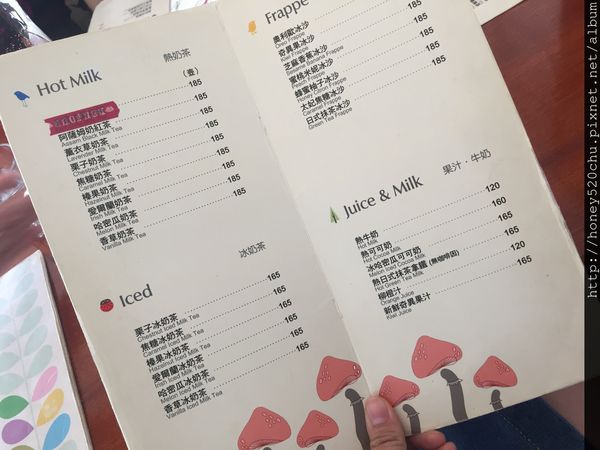 Hot Milk 熱奶茶
(壺)
185
阿薩姆奶紅茶 185
Assam Black Milk Tea
薰衣草奶茶 185
Lavender Milk Tea
栗子奶茶 185
Chestnut Milk Tea
焦糖奶茶 185
Caramel Milk Tea
榛果奶茶 185
Hazelnut Milk Tea
愛爾蘭奶茶 185
Irish Milk Tea
哈密瓜奶茶 185
Melon Milk Tea
香草奶茶
Vanilla Milk Tea
Iced 冰奶茶
栗子冰奶茶 165
Chestnut Iced Milk Tea
焦糖冰奶茶 165
Caramel Iced Milk Tea
榛果冰奶茶 165
Hazelnut Iced Milk Tea
愛爾蘭冰奶茶 165
Irish Iced Milk Tea
哈密瓜冰奶茶 165
Melon Iced Milk Tea
香草冰奶茶 165
Vanilla Iced Milk Tea
Frappe
奧利歐冰沙
Oreo Frappe
奇異果冰沙 185
Kiwi Frappe
芝麻香蕉冰沙 185
Sesame Banana Frappe
蜜桃米妮冰沙 185
Peach Frappe
蜂蜜柚子冰沙 185
Honey Citron Frappe
太妃焦糖冰沙 185
Caramel Frappe
日式抹茶冰沙 185
Green Tea Frappe
Juice & Milk 果汁・牛奶
熱牛奶 120
Hot Milk
熱可可奶 160
Hot Cocoa Milk
冰哈密瓜可可奶 165
Melon Iced Cocoa Milk
熱日式抹茶拿鐵 (無咖啡因) 165
Hot Green Tea Milk
柳橙汁 120
Orange Juice
新鮮奇異果汁 165
Kiwi Juice
http://honey520chu.pixnet.net/album